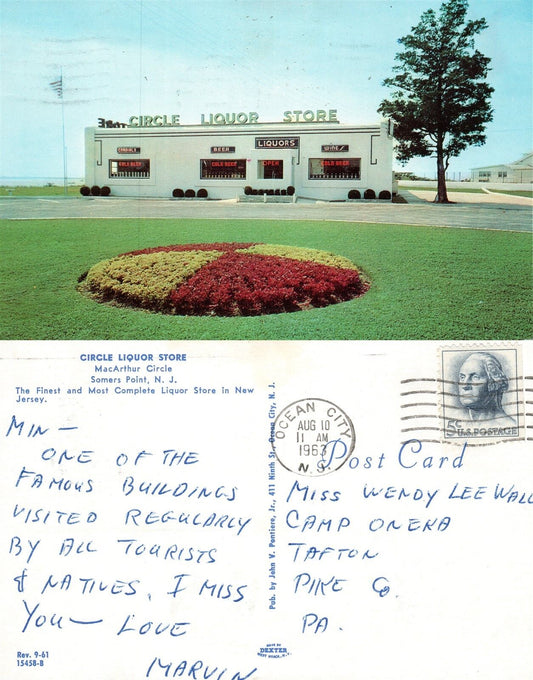 CIRCLE LIQUOR STORE
BEER
LIQUORS
WINES
COLD BEER
COLD BEER
OPEN
COLD BEER
CIRCLE LIQUOR STORE
MacArthur Circle
Somers Point, N. J.
The Finest and Most Complete Liquor Store in New
Jersey.
MIN —
ONE OF THE
FAMOUS BUILDINGS
VISITED REGULARLY
BY ALL TOURISTS
& NATIVES. I MISS
YOU — LOVE
MARVIN
Rev. 9-61
15458-B
Pub. by John V. Pontiere, Jr., 411 Ninth St., Ocean City, N. J.
MADE BY
DEXTER
WEST NYACK, N.Y.
OCEAN CITY
AUG 10
11 AM
1963
N.J.
5c U.S. POSTAGE
Post Card
MISS WENDY LEE WALL
CAMP ONEKA
TAFTON
PIKE Co.
PA.